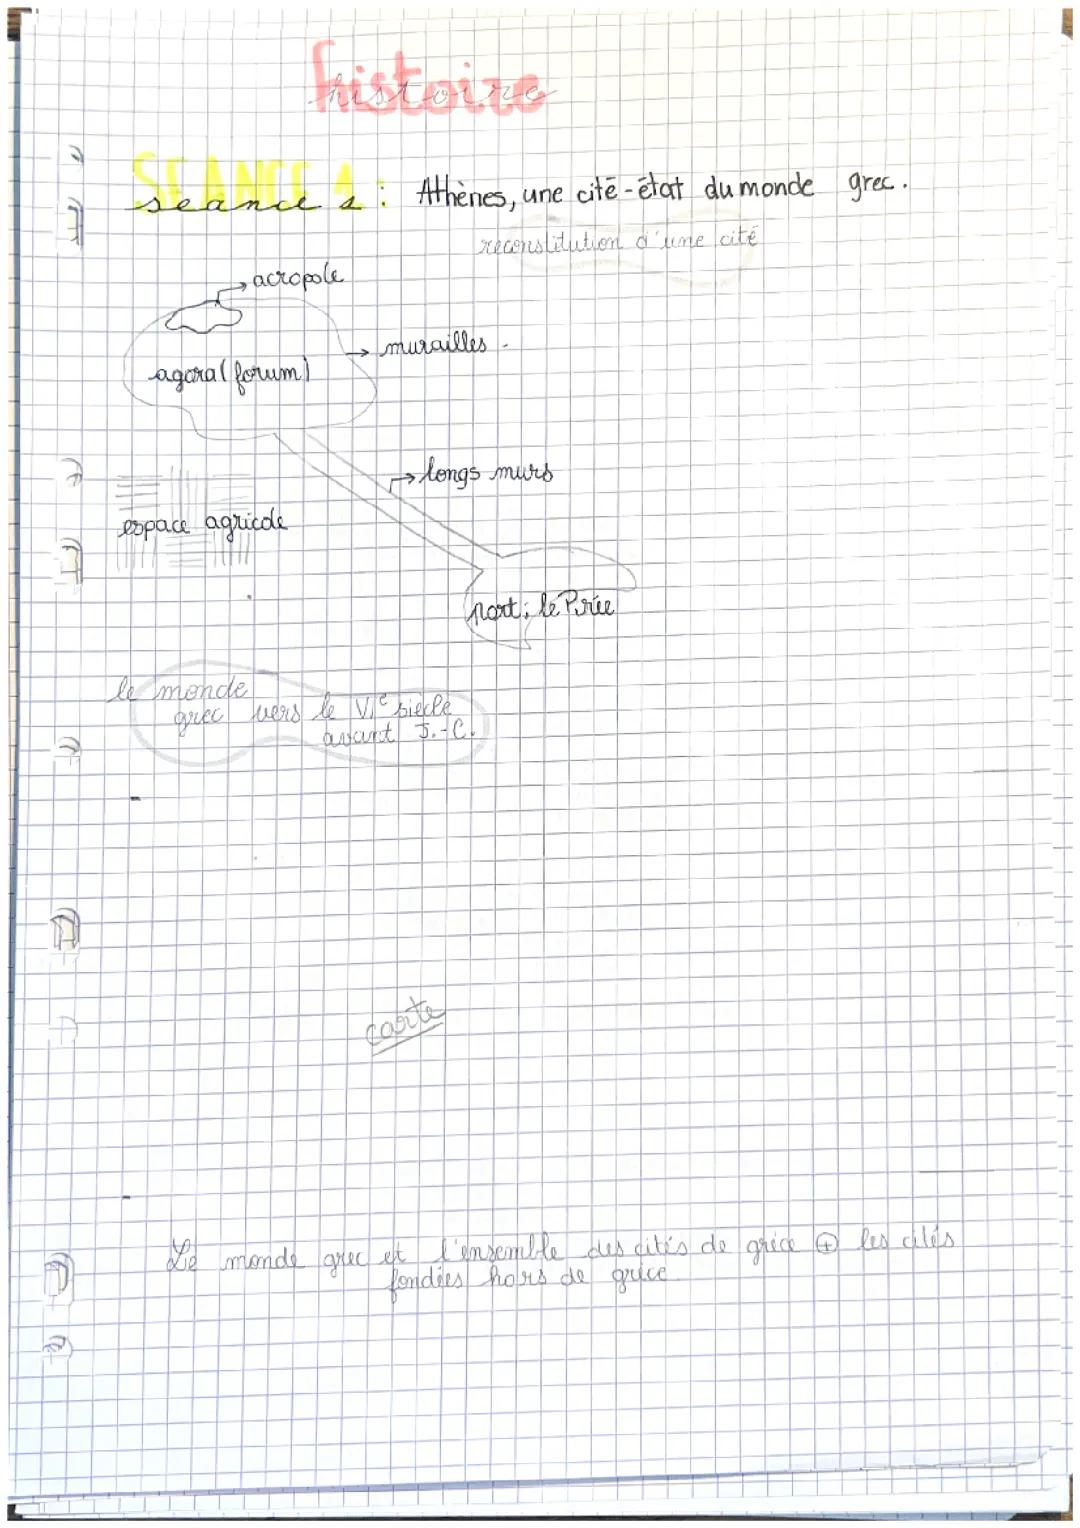 histoire
SEANCE 1
seance 1 : Athènes, une cité-état du monde grec.
reconstitution d'une cité
acropole
murailles
agora (forum)
longs murs
espace agricole
port : le Pirée
le monde
grec vers le VIe siècle
avant J.-C.
carte
Le monde grec et l'ensemble des cités de grèce + les cités
fondées hors de grèce